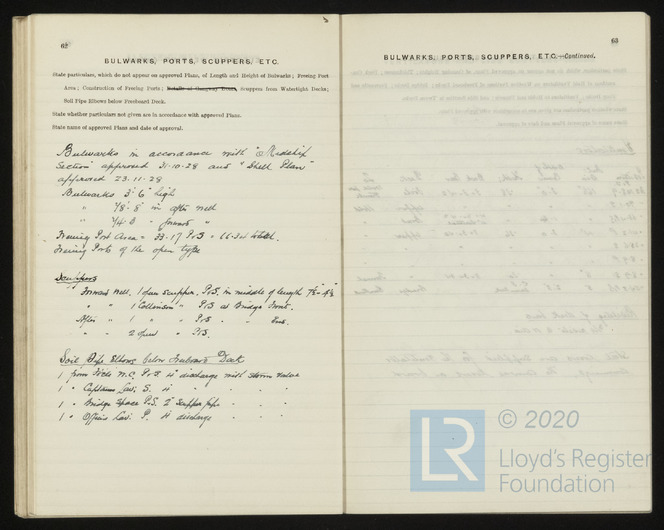 62
BULWARKS, PORTS, SCUPPERS, ETC.
State particulars, which do not appear on approved Plans, of Length and Height of Bulwarks; Freeing Port
Area; Construction of Freeing Ports; Details of Gangway Doors, Scuppers from Watertight Decks;
Soil Pipe Elbows below Freeboard Deck.
State whether particulars not given are in accordance with approved Plans.
State name of approved Plans and date of approval.
Bulwarks in accordance with "Midship
Section" approved 31-10-28 and "Shell Plan"
approved 23-11-28
Bulwarks 3' 6" high
in after well
" forward "
Freeing Port Area = 33.17 P&S = 66.34 total.
Freeing Ports of the open type
Scuppers
Forward well. 1 open scupper, P&S. in middle of length
" " 1 P&S at Bridge Front.
After " 1 " P&S - " End.
" - 2 open " P&S.
Soil Pipe Elbows below Freeboard Deck
1 from W.C. P&S 4" discharge with storm valve
1 " Captains Lav: S. 4 - - -
1 " Bridge Space P&S. 2" Scupper pipe - - -
1 " Officers Lav: P. 4 discharge - - -
63
BULWARKS, PORTS, SCUPPERS, ETC.—Continued.
© 2020
LR
Lloyd's Register
Foundation